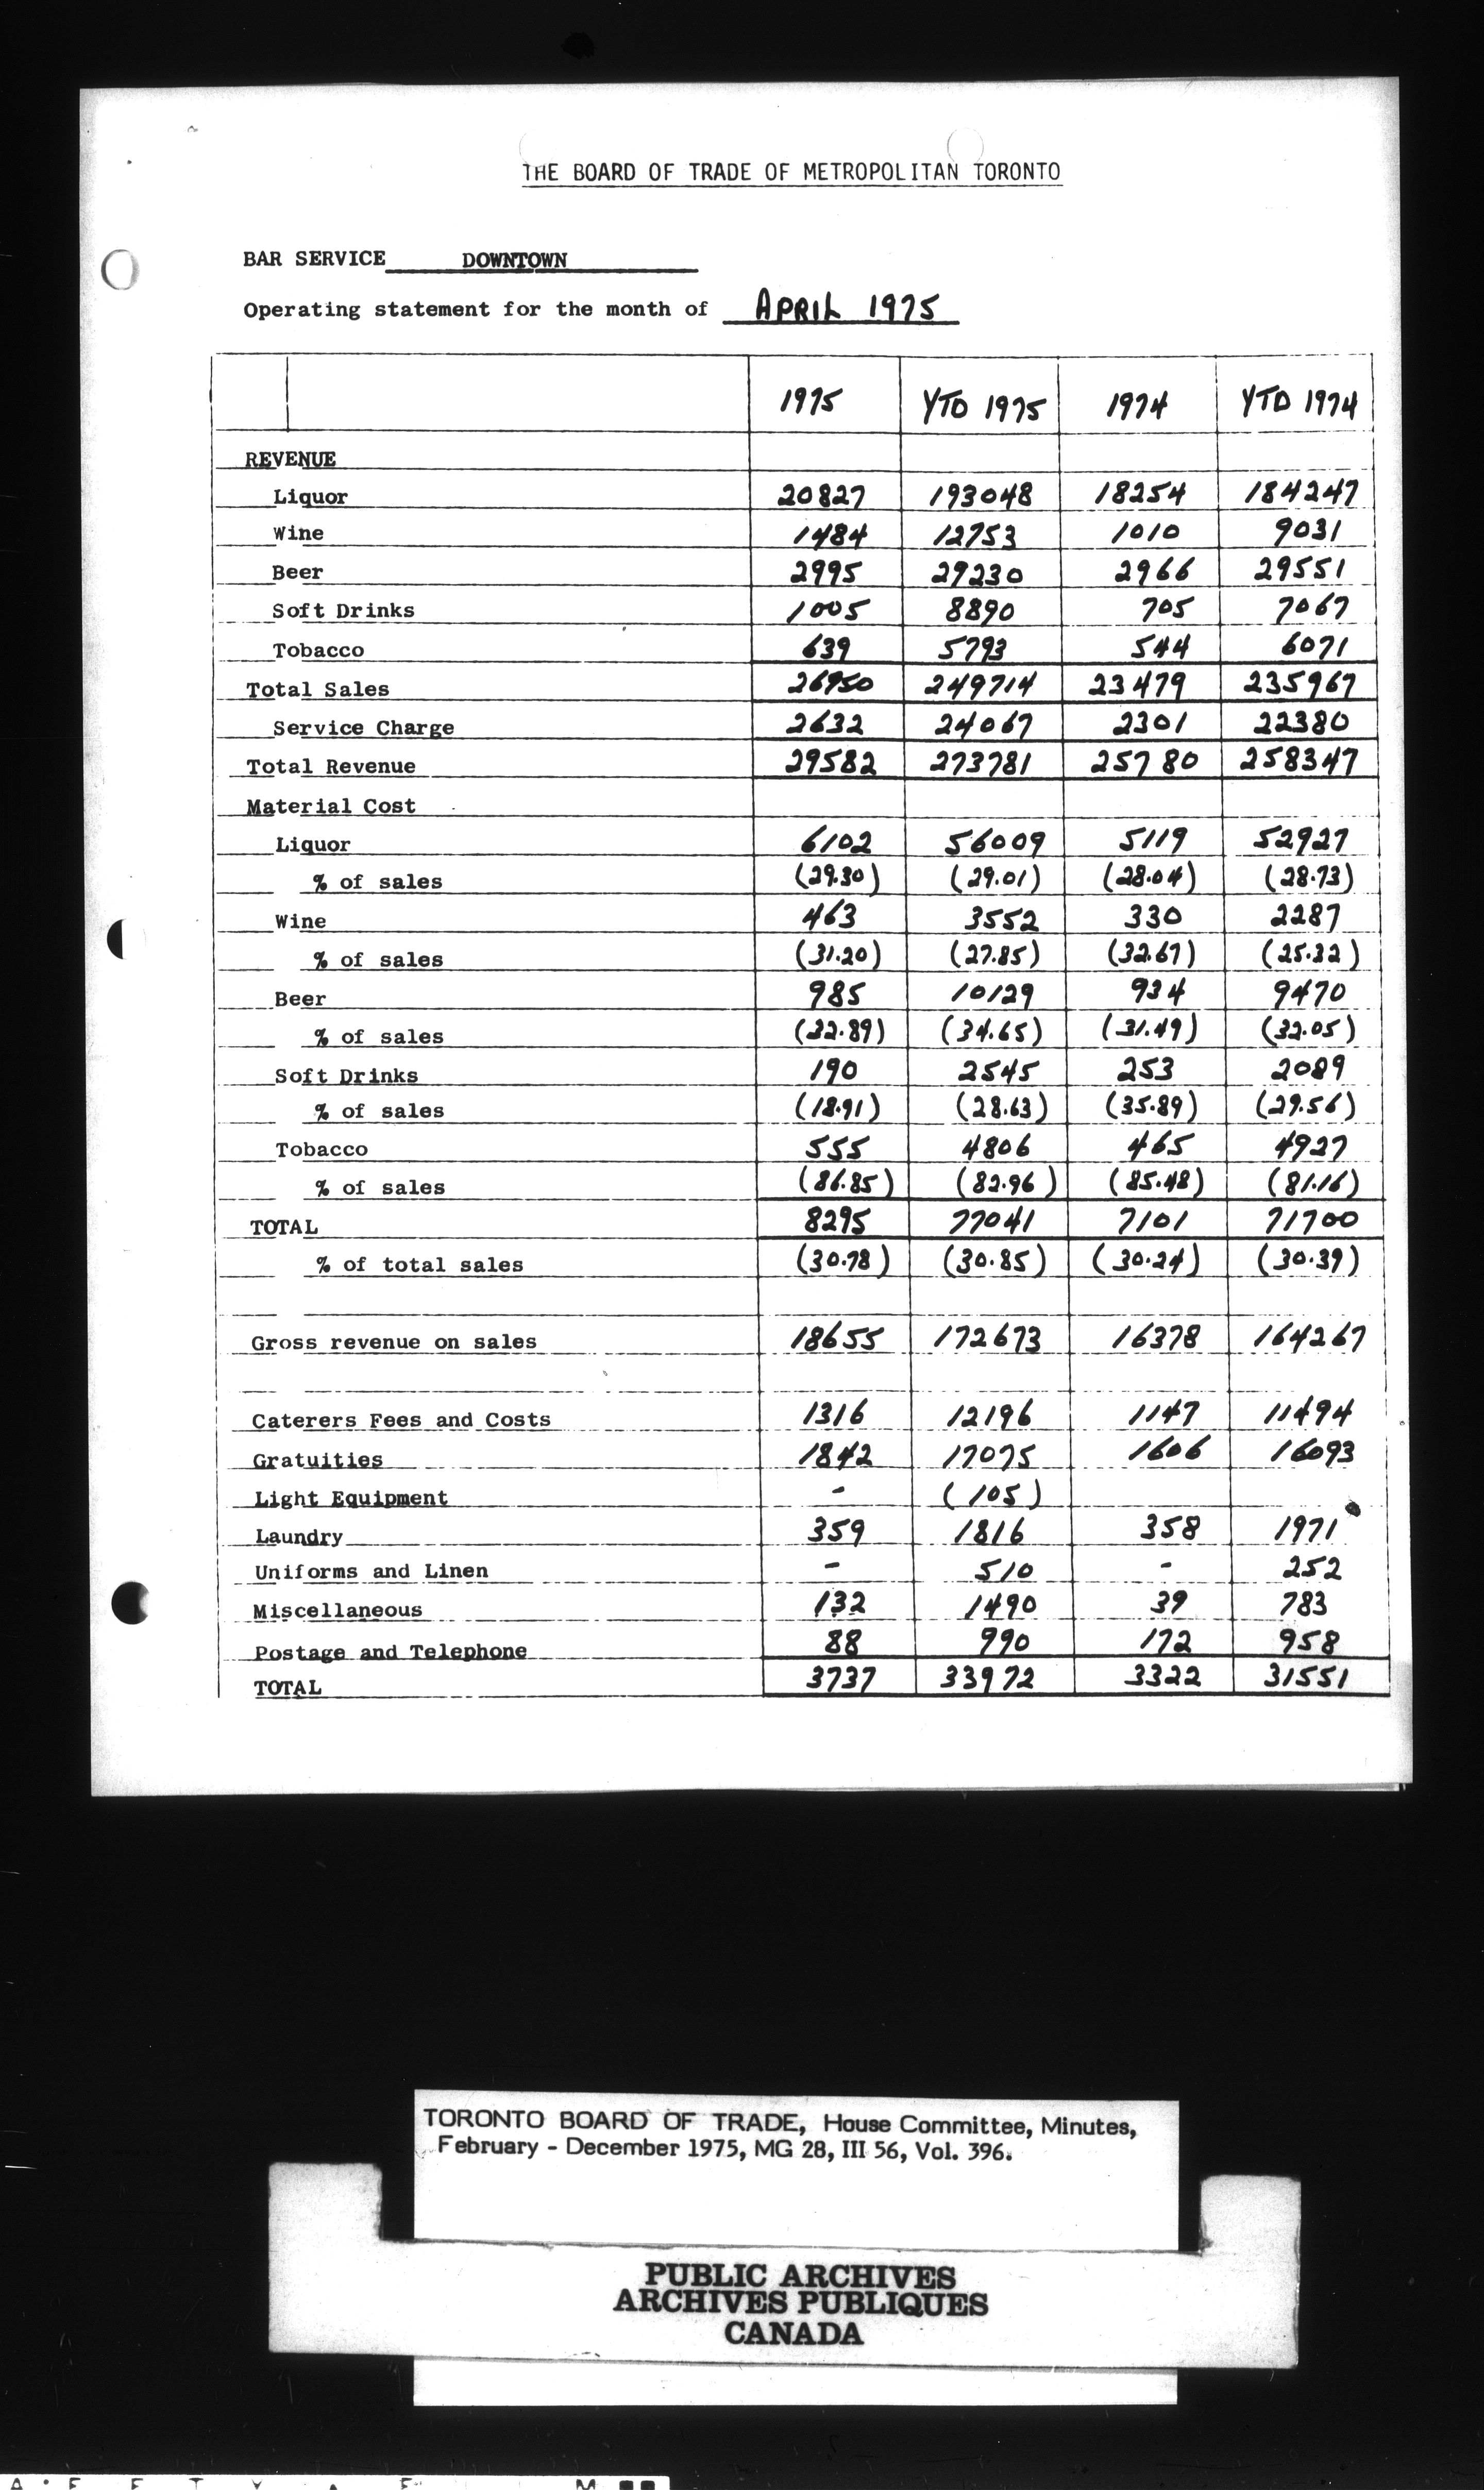 THE BOARD OF TRADE OF METROPOLITAN TORONTO
BAR SERVICE DOWNTOWN
Operating statement for the month of APRIL 1975
1975 YTD 1975 1974 YTD 1974
REVENUE
Liquor 20827 193048 18254 184247
Wine 1484 12753 1010 9031
Beer 2995 29230 2966 29551
Soft Drinks 1005 8890 705 7067
Tobacco 639 5793 544 6071
Total Sales 26950 249714 23479 235967
Service Charge 2632 24067 2301 22380
Total Revenue 29582 273781 25780 258347
Material Cost
Liquor 6102 56009 5119 52927
% of sales (29.30) (29.01) (28.04) (28.73)
Wine 463 3552 330 2287
% of sales (31.20) (27.85) (32.67) (25.32)
Beer 985 10129 934 9470
% of sales (32.89) (34.65) (31.49) (32.05)
Soft Drinks 190 2545 253 2089
% of sales (18.91) (28.63) (35.89) (29.56)
Tobacco 555 4806 465 4927
% of sales (86.85) (82.96) (85.48) (81.16)
TOTAL 8295 77041 7101 71700
% of total sales (30.78) (30.85) (30.24) (30.39)
Gross revenue on sales 18655 172673 16378 164267
Caterers Fees and Costs 1316 12196 1147 11494
Gratuities 1842 17075 1606 16093
Light Equipment - (105)
Laundry 359 1816 358 1971
Uniforms and Linen - 510 - 252
Miscellaneous 132 1490 39 783
Postage and Telephone 88 990 172 958
TOTAL 3737 33972 3322 31551
TORONTO BOARD OF TRADE, House Committee, Minutes,
February - December 1975, MG 28, III 56, Vol. 396.
PUBLIC ARCHIVES
ARCHIVES PUBLIQUES
CANADA